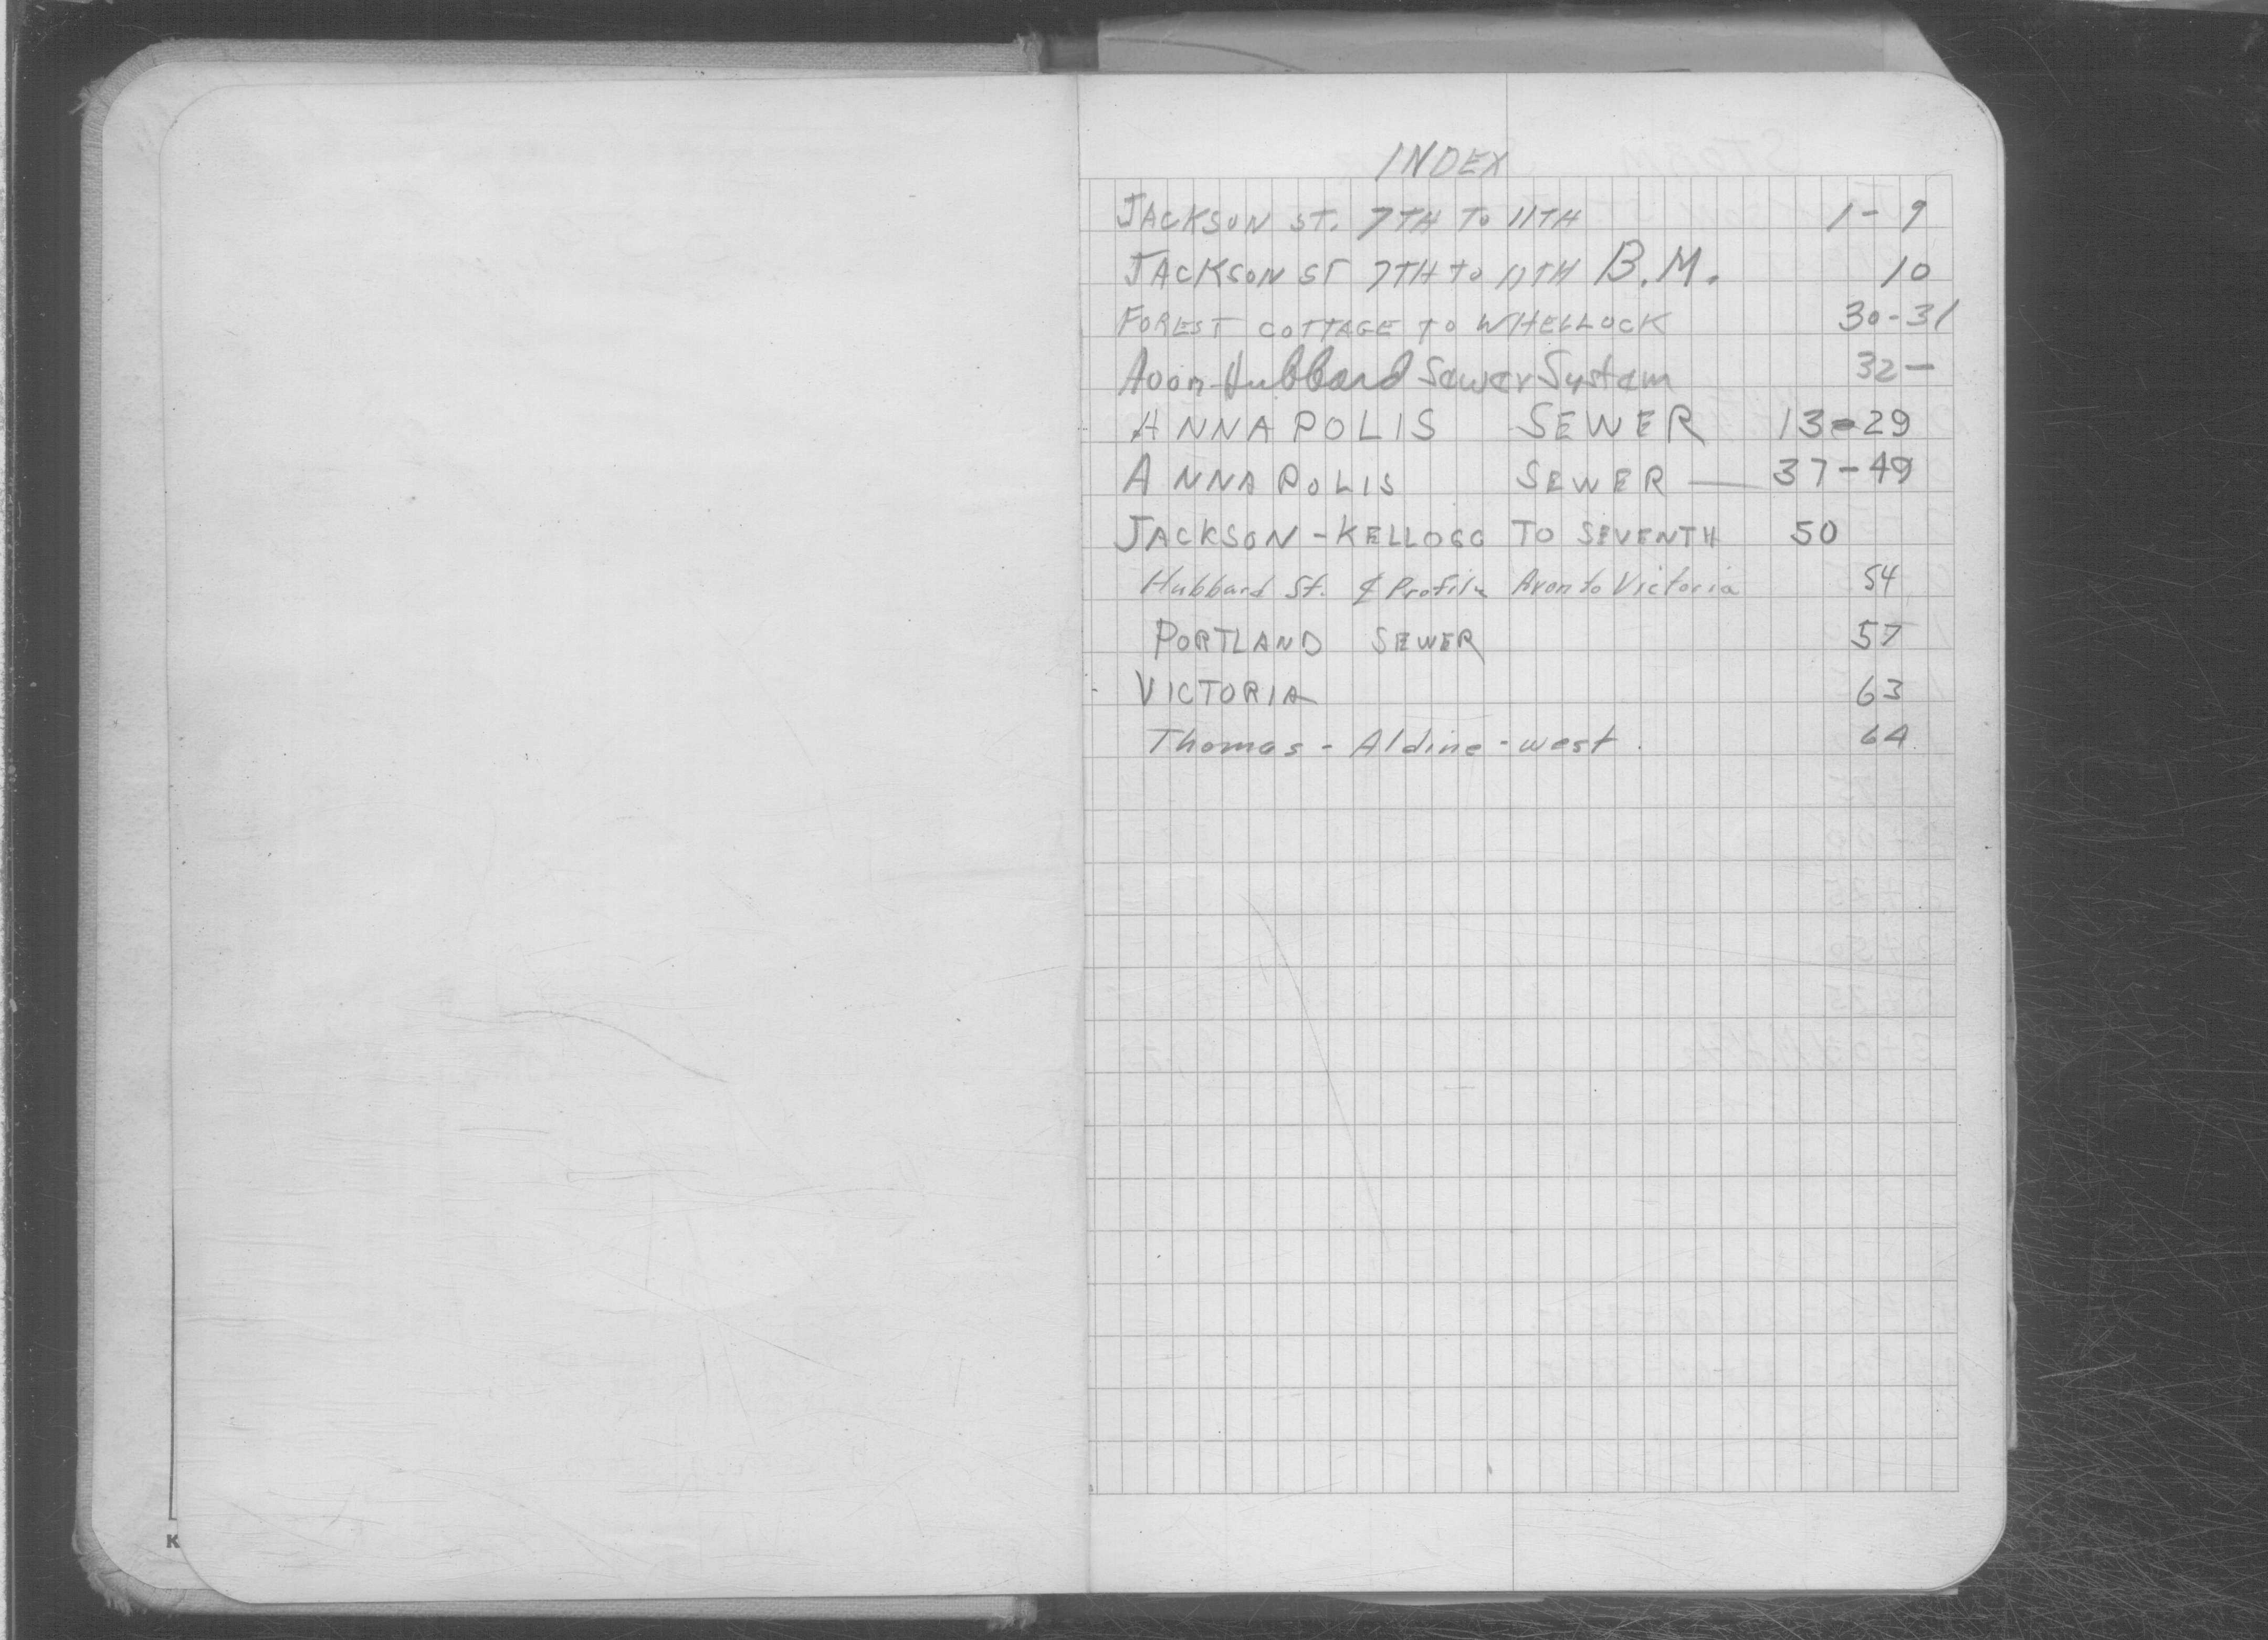 INDEX
JACKSON ST. 7TH TO 11TH 1-9
JACKSON ST 7TH TO 11TH B.M. 10
FOREST COTTAGE TO WHELLOCK 30-31
Avon-Hubbard Sewer System 32-
ANNAPOLIS SEWER 13-29
ANNAPOLIS SEWER — 37-49
JACKSON - KELLOGG TO SEVENTH 50
Hubbard St. ₵ Profile Avon to Victoria 54
PORTLAND SEWER 57
VICTORIA 63
Thomas - Aldine - west. 64
K